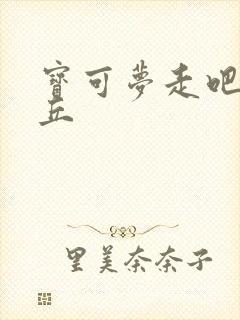 寶可夢走吧
丘
里美奈奈子